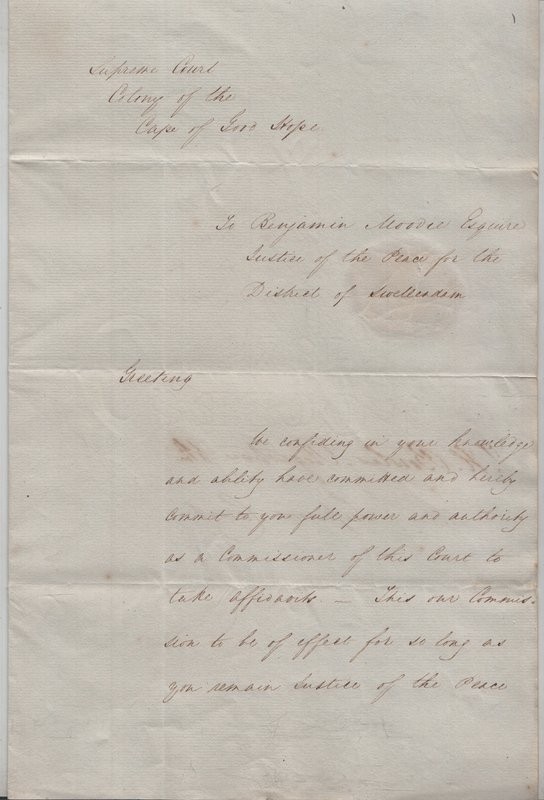 Supreme Court
Colony of the
Cape of Good Hope
To Benjamin Moodie Esquire
Justice of the Peace for the
District of Swellendam
Greeting
We confiding in your knowledge
and ability have committed and hereby
commit to you full power and authority
as a Commissioner of this Court to
take affidavits — This our Commis-
sion to be of effect for so long as
you remain Justice of the Peace